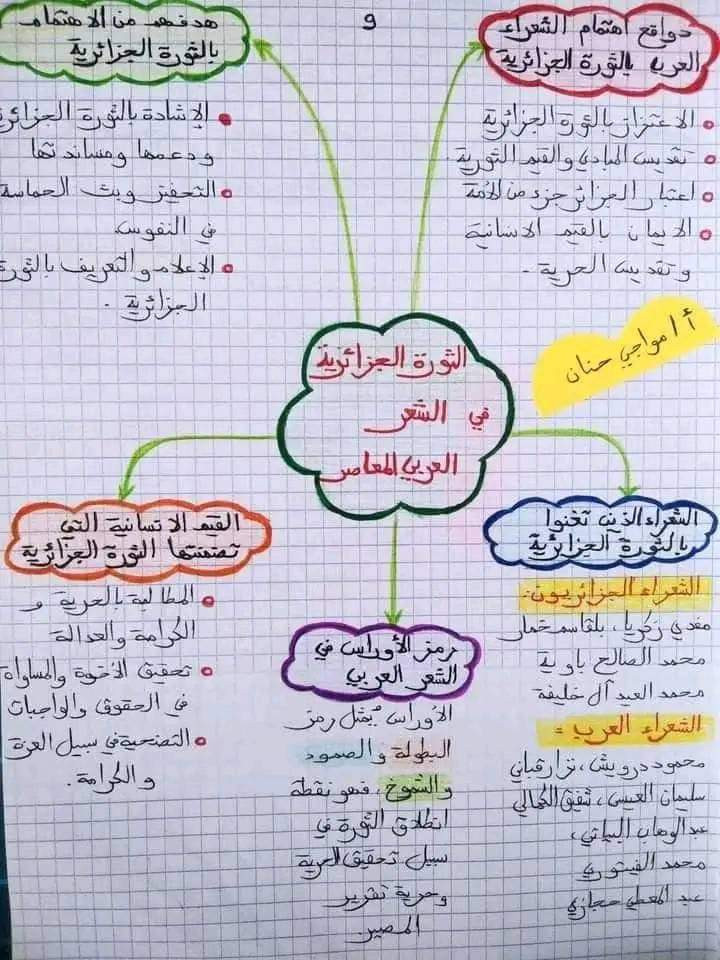 9
دوافع اهتمام الشعراء
العرب بالثورة الجزائرية
الاعتزاز بالثورة الجزائرية
تقديس المبادئ والقيم الثورية
اعتبار الجزائر جزء من الأمة
الايمان بالقيم الانسانية
وتقديس الحرية.
هدفهم من الاهتمام
بالثورة الجزائرية
الإشادة بالثورة الجزائرية
ودعمها ومساندتها
التحفيز وبث الحماسة
في النفوس
الإعلام والتعريف بالثورة
الجزائرية.
أ/ مواجي حنان
الثورة الجزائرية
في الشعر
العربي المعاصر
الشعراء الذين تغنوا
بالثورة الجزائرية
الشعراء الجزائريون:
مفدي زكريا، بلقاسم خمار
محمد الصالح باوية
محمد العيد آل خليفة
الشعراء العرب =
محمود درويش، نزار قباني
سليمان العيسى، شفيق الكمالي
عبد الوهاب البياتي،
محمد الفيتوري
عبد المعطي حجازي
رمز الأوراس في
الشعر العربي
الأوراس يمثل رمز
البطولة والصمود
والشموخ، فهو نقطة
انطلاق الثورة في
سبيل تحقيق الحرية
وحرية تقرير
المصير.
القيم الانسانية التي
تضمنتها الثورة الجزائرية
المطالبة بالحرية و
الكرامة والعدالة
تحقيق الأخوة والمساواة
في الحقوق والواجبات
التضحية في سبيل العزة
والكرامة.